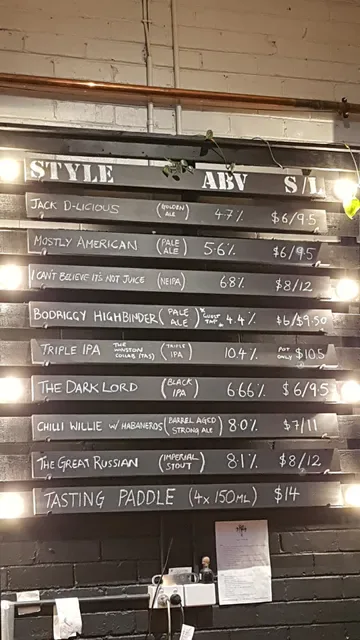 STYLE ABV S/L
JACK D-LICIOUS (GOLDEN ALE) 4.7% $6/9.5
MOSTLY AMERICAN (PALE ALE) 5.6% $6/9.5
I CAN'T BELIEVE IT'S NOT JUICE (NEIPA) 6.8% $8/12
BODRIGGY HIGHBINDER (PALE ALE) * GUEST TAP * 4.4% $6/$9.50
TRIPLE IPA THE WINSTON COLLAB (TAS) (TRIPLE IPA) 10.4% POT ONLY $10.5
THE DARK LORD (BLACK IPA) 6.66% $6/9.5
CHILLI WILLIE W/ HABANEROS (BARREL AGED STRONG ALE) 8.0% $7/11
THE GREAT RUSSIAN (IMPERIAL STOUT) 8.1% $8/12
TASTING PADDLE (4x 150ML) $14